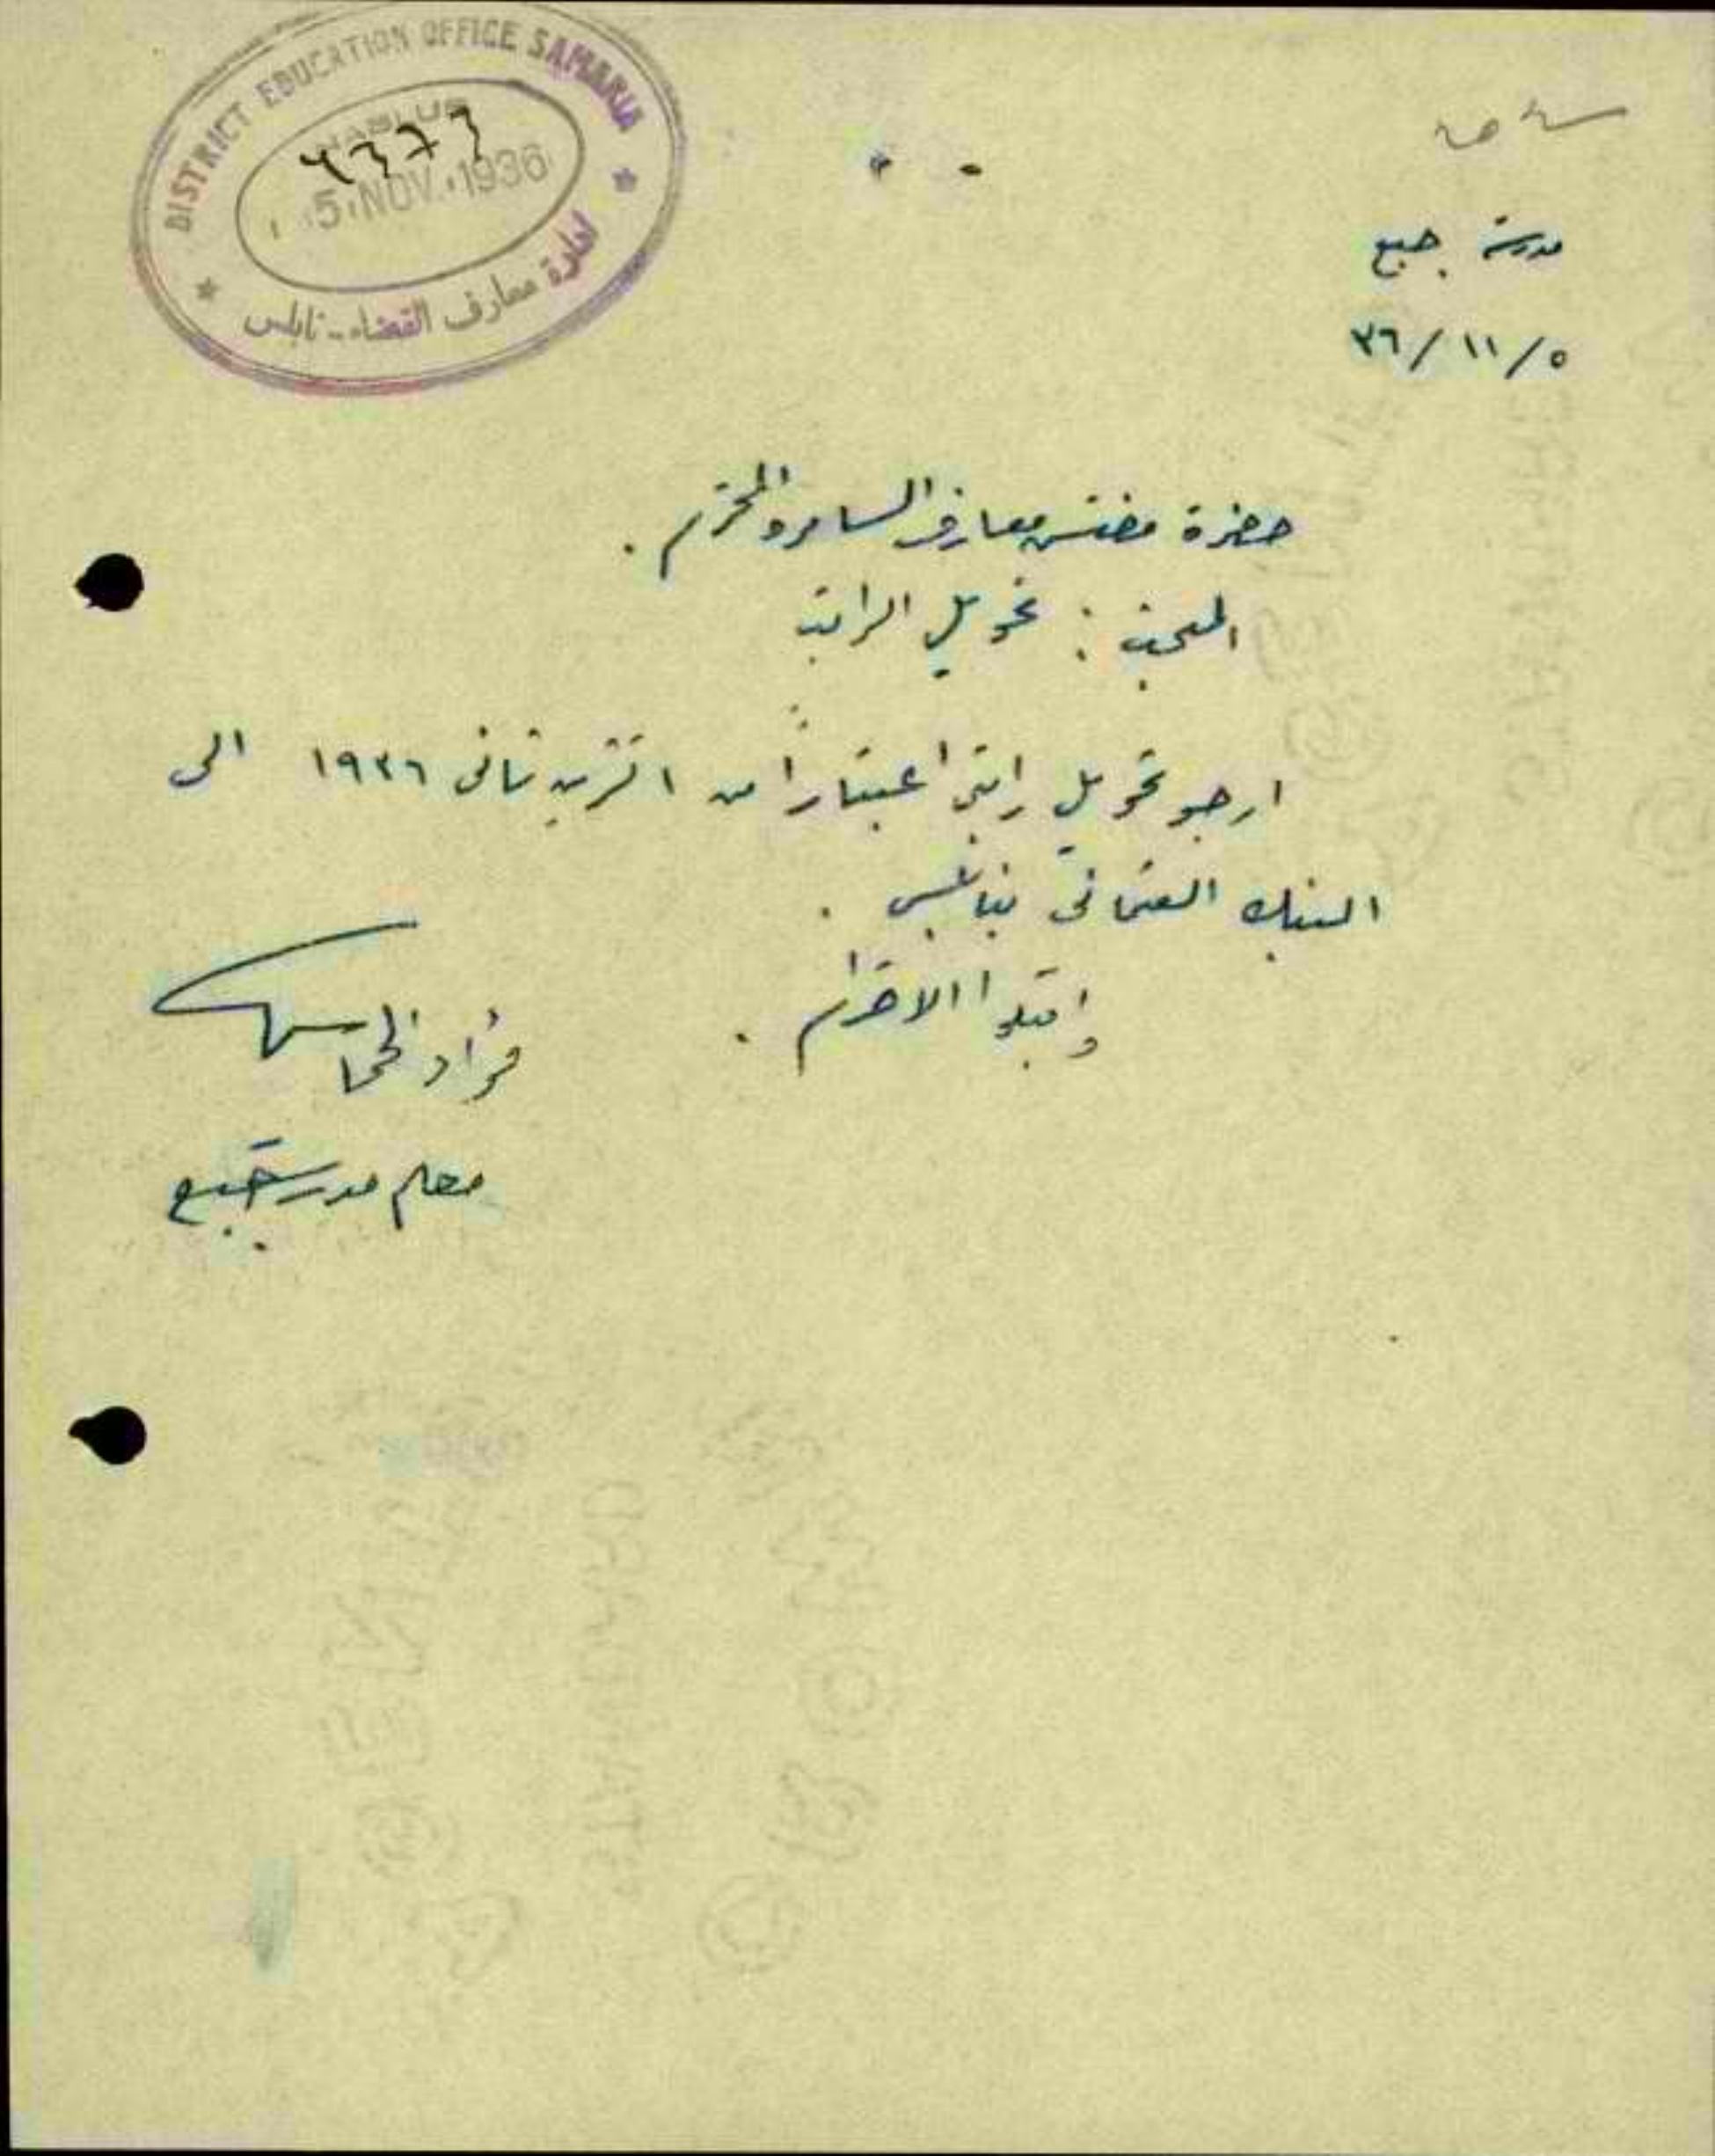 DISTRICT EDUCATION OFFICE SAMARIA
NABLUS
5 NOV. 1936
ادارة معارف القضاء - نابلس
مدرسة جبع
٣٦/١١/٥
حضرة مفتش معارف السامره المحترم .
المبحث : تحويل الراتب
ارجو تحويل راتبي اعتباراً من ١ تشرين ثاني ١٩٣٦ الى
البنك العثماني بنابلس .
واقبلوا الاحترام .
فؤاد
معلم مدرسة جبع